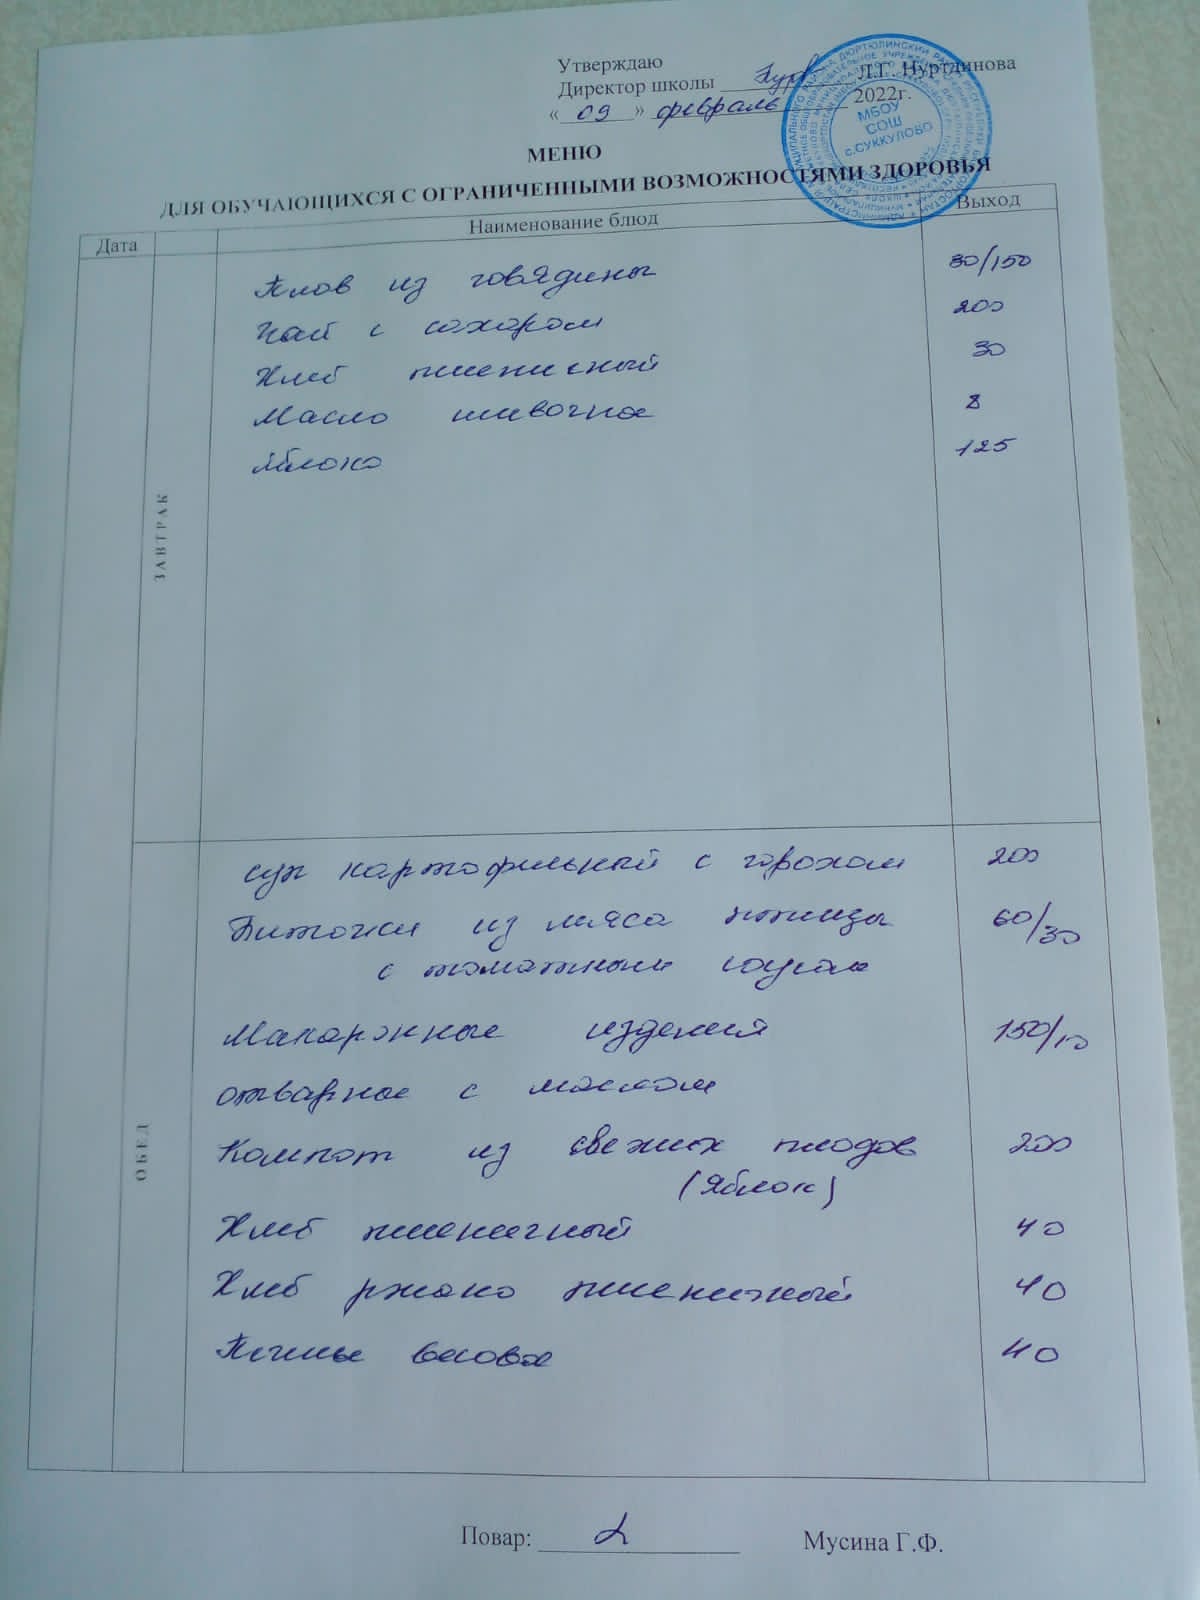 Утверждаю
Директор школы Л.Г. Нуртдинова
« 09 » февраль 2022г.
МБОУ
СОШ
с.СУККУЛОВО
МЕНЮ
ДЛЯ ОБУЧАЮЩИХСЯ С ОГРАНИЧЕННЫМИ ВОЗМОЖНОСТЯМИ ЗДОРОВЬЯ
Дата Наименование блюд Выход
ЗАВТРАК
Плов из говядины 80/150
Чай с сахаром 200
Хлеб пшеничный 30
Масло сливочное 8
Яблоко 125
ОБЕД
суп картофельный с горохом 200
Биточки из мяса птицы 60/30
с томатным соусом
Макаронные изделия 150/10
отварное с маслом
Компот из свежих плодов 200
(Яблок)
Хлеб пшеничный 40
Хлеб ржано пшеничный 40
Печенье весовое 40
Повар: Мусина Г.Ф.